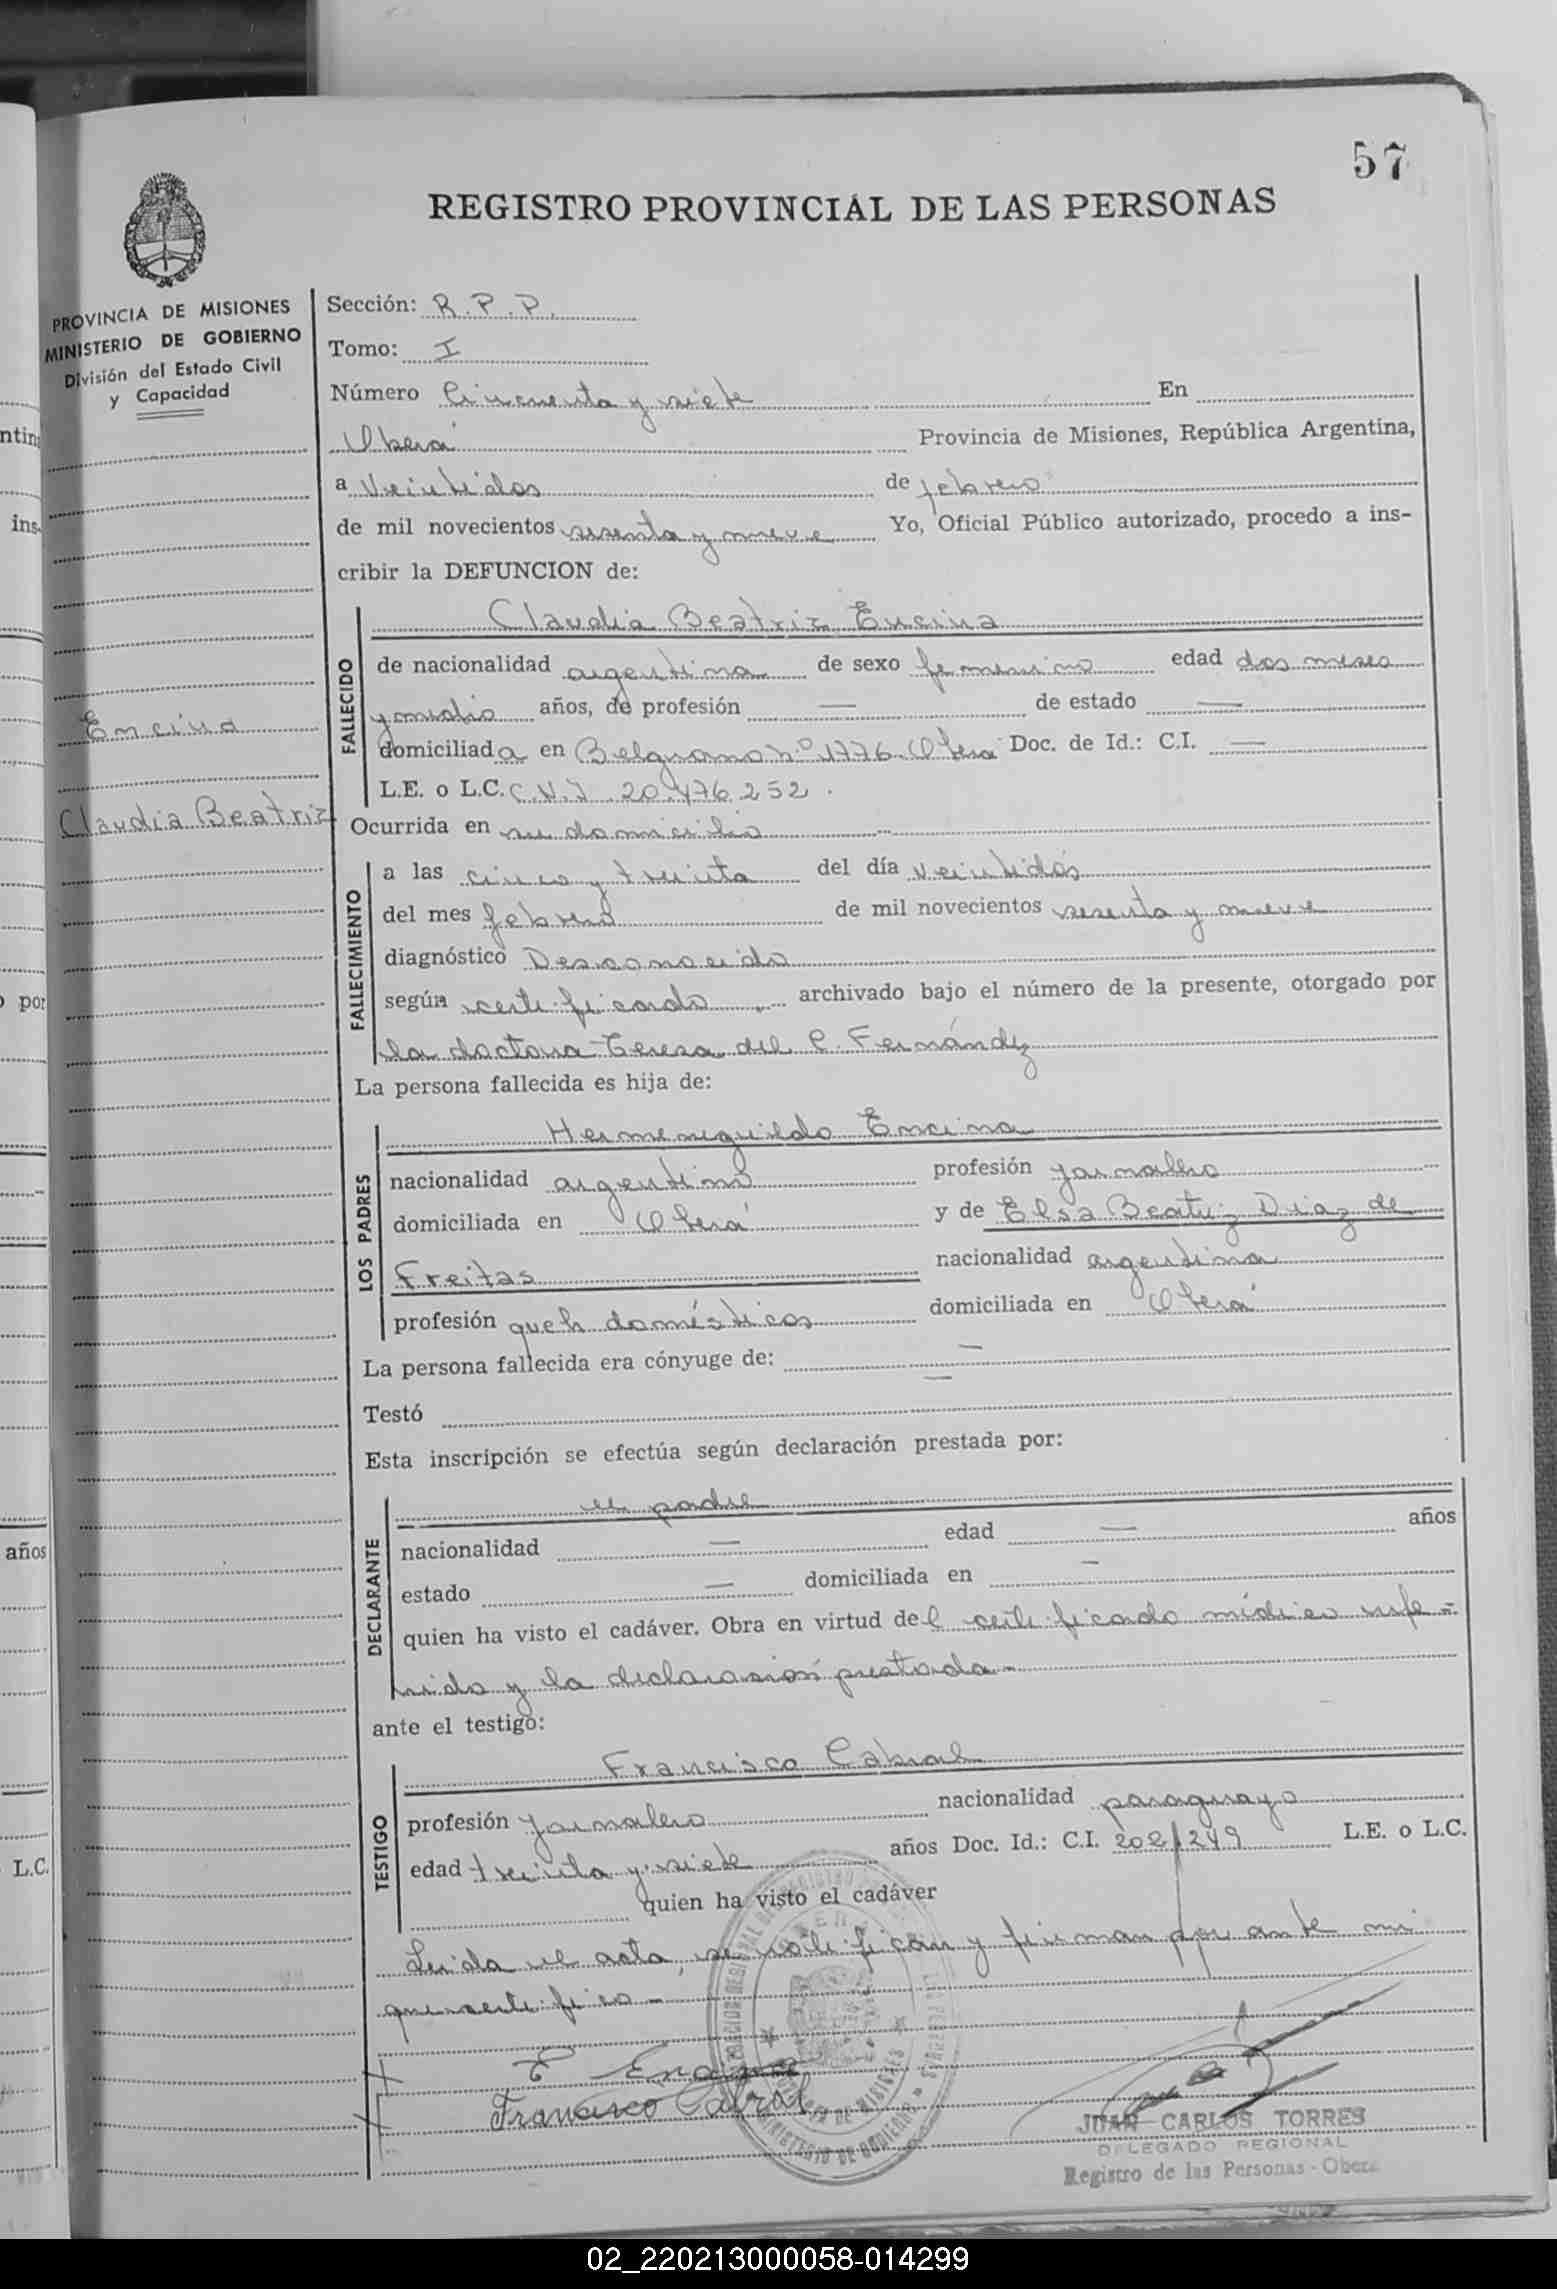 57
REGISTRO PROVINCIAL DE LAS PERSONAS
PROVINCIA DE MISIONES
MINISTERIO DE GOBIERNO
División del Estado Civil
y Capacidad
Encina
Claudia Beatriz
Sección: R.P.P.
Tomo: I
Número Cincuenta y siete En
Oberá Provincia de Misiones, República Argentina,
a veintidos de febrero
de mil novecientos sesenta y nueve Yo, Oficial Público autorizado, procedo a ins-
cribir la DEFUNCION de:
FALLECIDO
Claudia Beatriz Encina
de nacionalidad argentina de sexo femenino edad dos meses
y medio años, de profesión — de estado —
domiciliada en Belgrano nº 1776 Oberá Doc. de Id.: C.I. —
L.E. o L.C. C.N.I. 20.476.252.
Ocurrida en su domicilio
FALLECIMIENTO
a las cinco y treinta del día veintidós
del mes febrero de mil novecientos sesenta y nueve
diagnóstico Desconocido
según certificado archivado bajo el número de la presente, otorgado por
la doctora Teresa del C. Fernández
La persona fallecida es hija de:
LOS PADRES
Hermenegildo Encina
nacionalidad argentino profesión jornalero
domiciliada en Oberá y de Elsa Beatriz Diaz de
Freitas nacionalidad argentina
profesión queh domésticos domiciliada en Oberá
La persona fallecida era cónyuge de: —
Testó —
Esta inscripción se efectúa según declaración prestada por:
DECLARANTE
el padre
nacionalidad — edad — años
estado — domiciliada en —
quien ha visto el cadáver. Obra en virtud del certificado médico refe-
rido y la declaración prestada-
ante el testigo:
TESTIGO
Francisco Cabral
profesión jornalero nacionalidad paraguayo
edad treinta y siete años Doc. Id.: C.I. 202.249 L.E. o L.C.
quien ha visto el cadáver
Leida el acta, se ratifican y firman por ante mi
que certifico-
E Encina
Francisco Cabral
JUAN CARLOS TORRES
DELEGADO REGIONAL
Registro de las Personas - Oberá
ntin
ins-
o por
años
L.C.
02_220213000058-014299